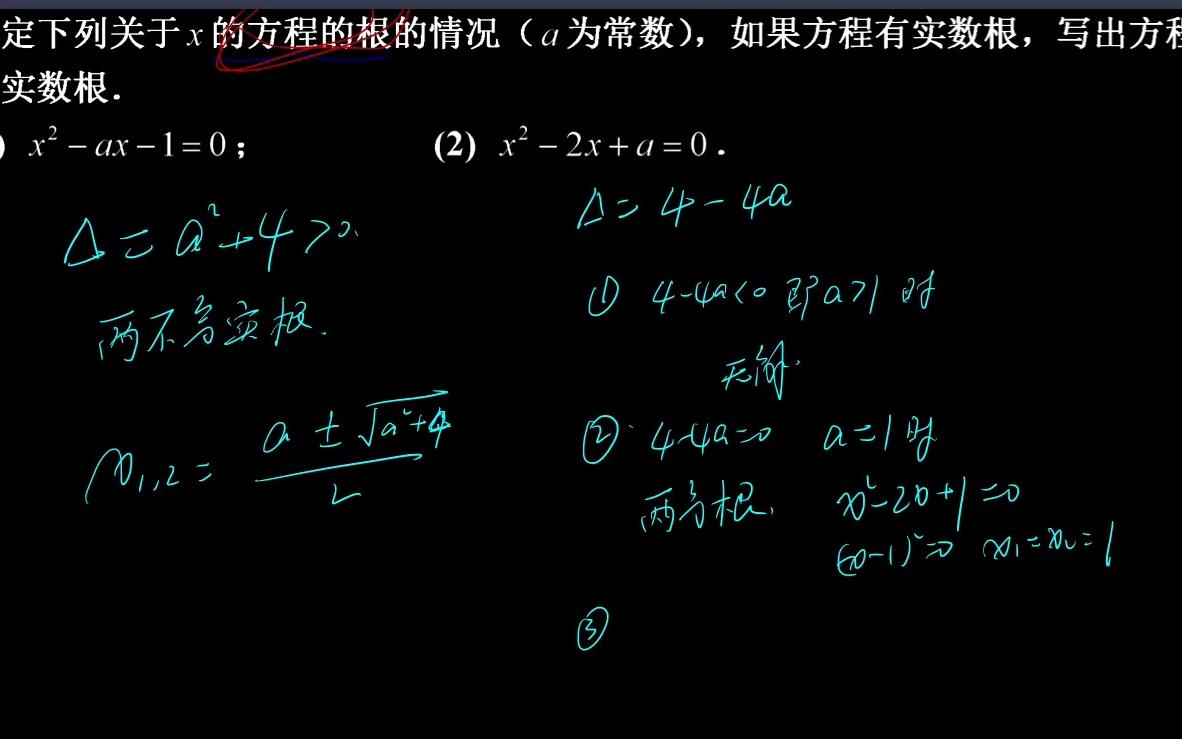 定下列关于x的方程的根的情况（a为常数），如果方程有实数根，写出方程
实数根．
) x² − ax − 1 = 0；
(2) x² − 2x + a = 0．
Δ = a² + 4 > 0.
两不等实根.
x₁,₂ = (a ± √(a²+4)) / 2
Δ = 4 − 4a
① 4-4a<0 即 a>1 时
无解.
② 4-4a=0 a=1 时
两等根. x²-2x+1=0
(x-1)²=0 x₁=x₂=1
③